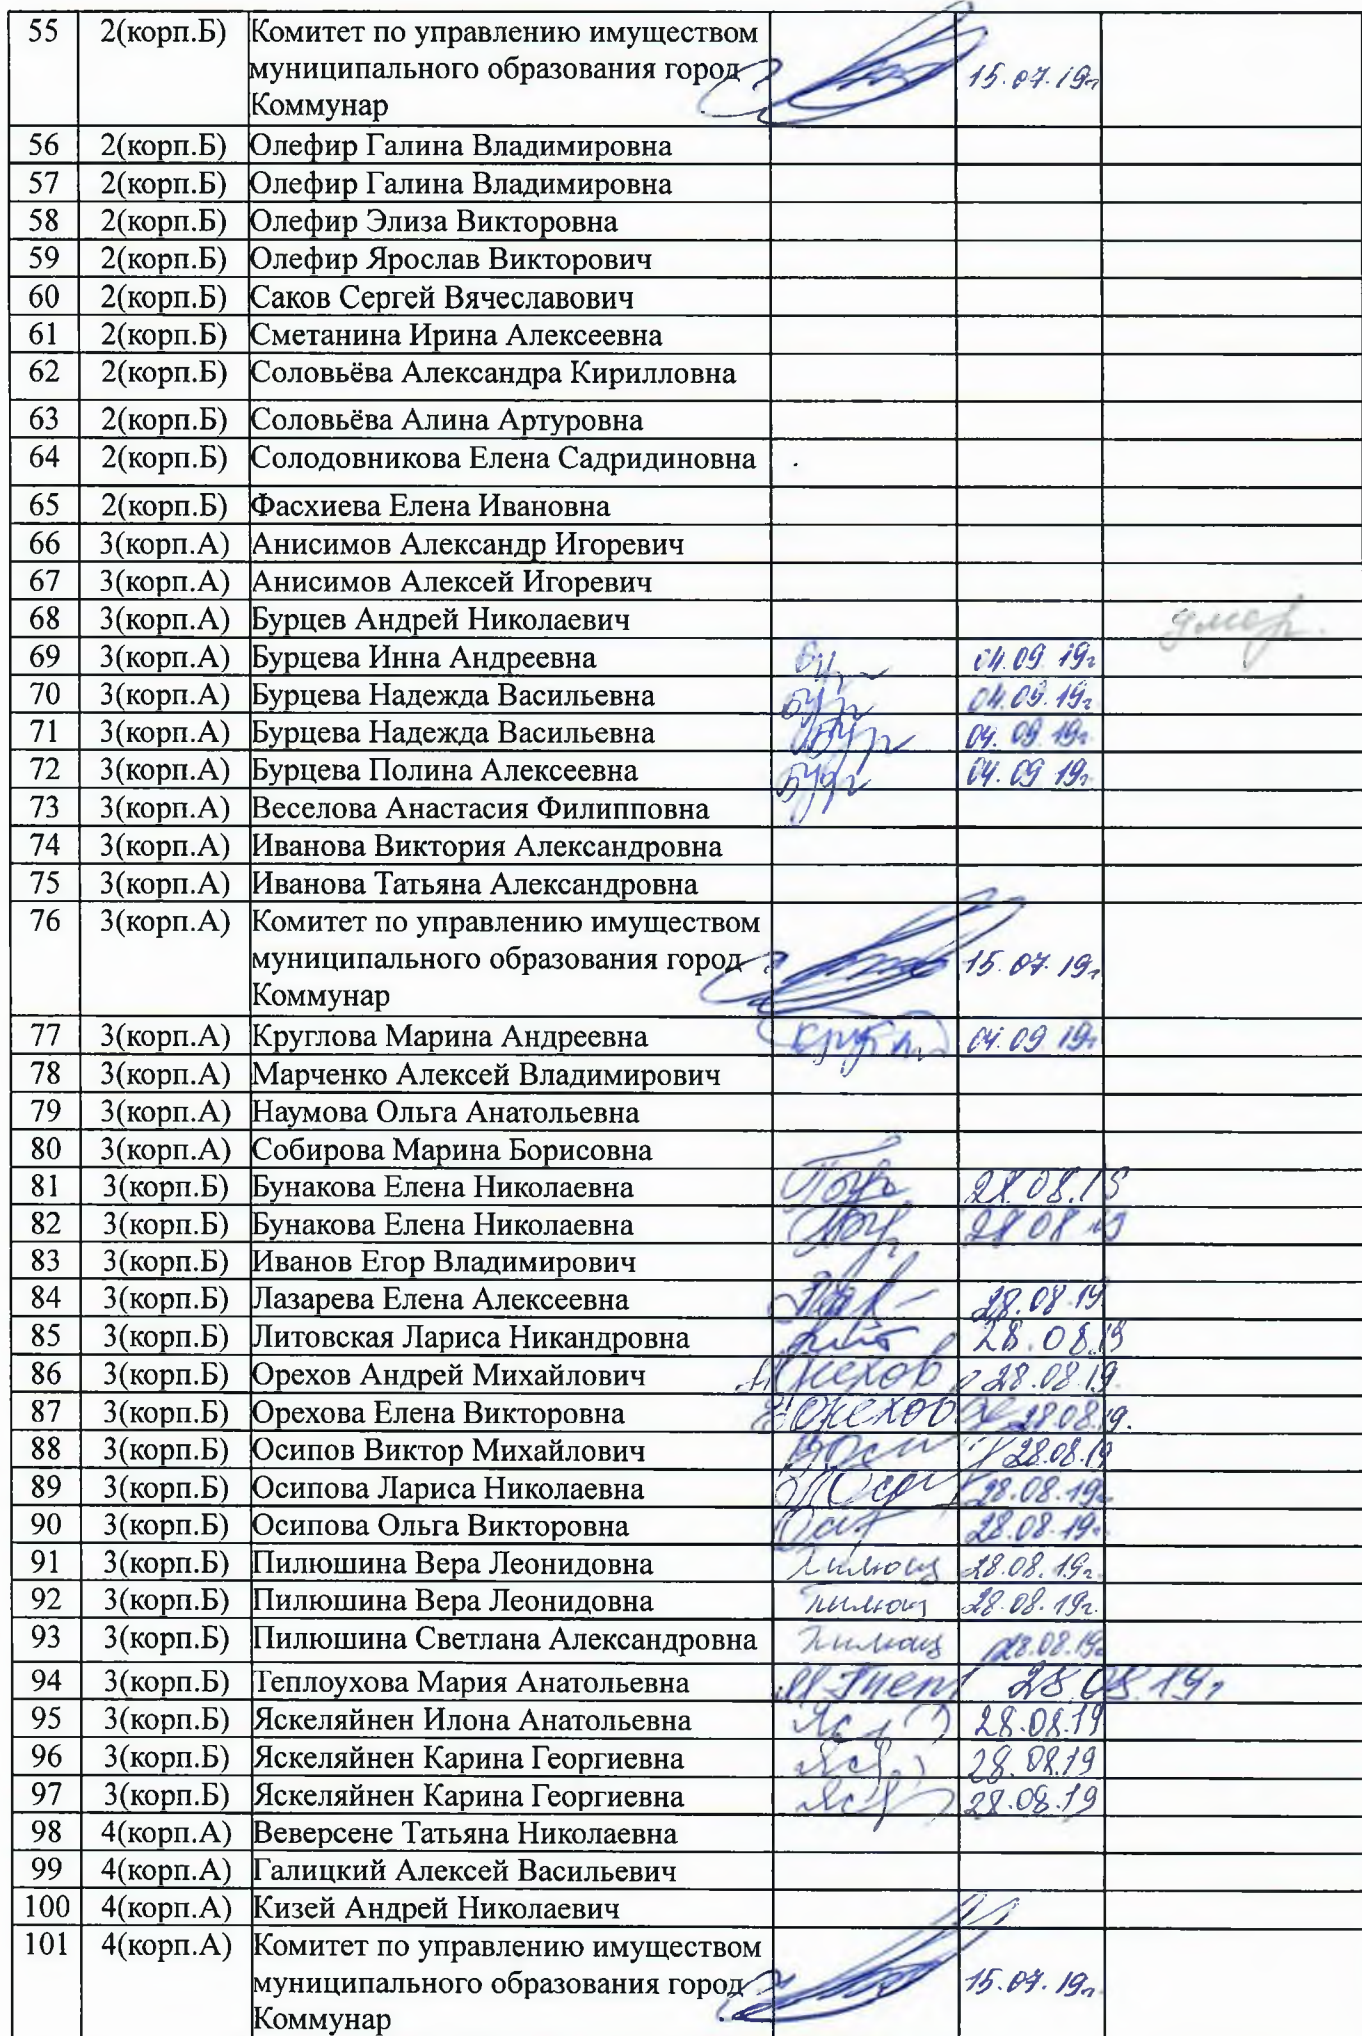 55 2(корп.Б) Комитет по управлению имуществом
муниципального образования город 15.07.19г
Коммунар
56 2(корп.Б) Олефир Галина Владимировна
57 2(корп.Б) Олефир Галина Владимировна
58 2(корп.Б) Олефир Элиза Викторовна
59 2(корп.Б) Олефир Ярослав Викторович
60 2(корп.Б) Саков Сергей Вячеславович
61 2(корп.Б) Сметанина Ирина Алексеевна
62 2(корп.Б) Соловьёва Александра Кирилловна
63 2(корп.Б) Соловьёва Алина Артуровна
64 2(корп.Б) Солодовникова Елена Садридиновна
65 2(корп.Б) Фасхиева Елена Ивановна
66 3(корп.А) Анисимов Александр Игоревич
67 3(корп.А) Анисимов Алексей Игоревич
68 3(корп.А) Бурцев Андрей Николаевич
69 3(корп.А) Бурцева Инна Андреевна 04.09 19г
70 3(корп.А) Бурцева Надежда Васильевна 04.09.19г
71 3(корп.А) Бурцева Надежда Васильевна 04.09 19г
72 3(корп.А) Бурцева Полина Алексеевна 04.09 19г
73 3(корп.А) Веселова Анастасия Филипповна
74 3(корп.А) Иванова Виктория Александровна
75 3(корп.А) Иванова Татьяна Александровна
76 3(корп.А) Комитет по управлению имуществом
муниципального образования город 15.07.19г
Коммунар
77 3(корп.А) Круглова Марина Андреевна 04.09 19г
78 3(корп.А) Марченко Алексей Владимирович
79 3(корп.А) Наумова Ольга Анатольевна
80 3(корп.А) Собирова Марина Борисовна
81 3(корп.Б) Бунакова Елена Николаевна 28.08.19
82 3(корп.Б) Бунакова Елена Николаевна 28 08 19
83 3(корп.Б) Иванов Егор Владимирович
84 3(корп.Б) Лазарева Елена Алексеевна 28.08.19
85 3(корп.Б) Литовская Лариса Никандровна 28.08.19
86 3(корп.Б) Орехов Андрей Михайлович 28.08.19.
87 3(корп.Б) Орехова Елена Викторовна 28.08.19.
88 3(корп.Б) Осипов Виктор Михайлович 28.08.19
89 3(корп.Б) Осипова Лариса Николаевна 28.08.19г
90 3(корп.Б) Осипова Ольга Викторовна 28.08.19г
91 3(корп.Б) Пилюшина Вера Леонидовна 28.08.19г
92 3(корп.Б) Пилюшина Вера Леонидовна 28.08.19г.
93 3(корп.Б) Пилюшина Светлана Александровна 28.08.19г
94 3(корп.Б) Теплоухова Мария Анатольевна 28.08.19г
95 3(корп.Б) Яскеляйнен Илона Анатольевна 28.08.19
96 3(корп.Б) Яскеляйнен Карина Георгиевна 28.08.19
97 3(корп.Б) Яскеляйнен Карина Георгиевна 28.08.19
98 4(корп.А) Веверсене Татьяна Николаевна
99 4(корп.А) Галицкий Алексей Васильевич
100 4(корп.А) Кизей Андрей Николаевич
101 4(корп.А) Комитет по управлению имуществом
муниципального образования город 15.07.19г
Коммунар